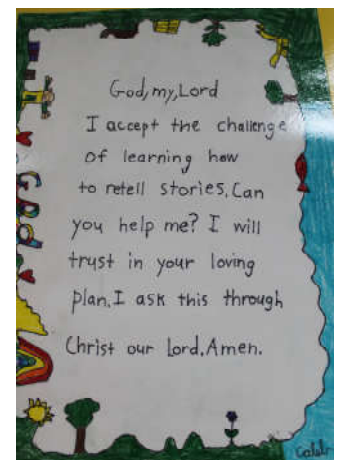 God, my, Lord
I accept the challenge
of learning how
to retell stories. Can
you help me? I will
trust in your loving
plan. I ask this through
Christ our Lord. Amen.
God
Caleb